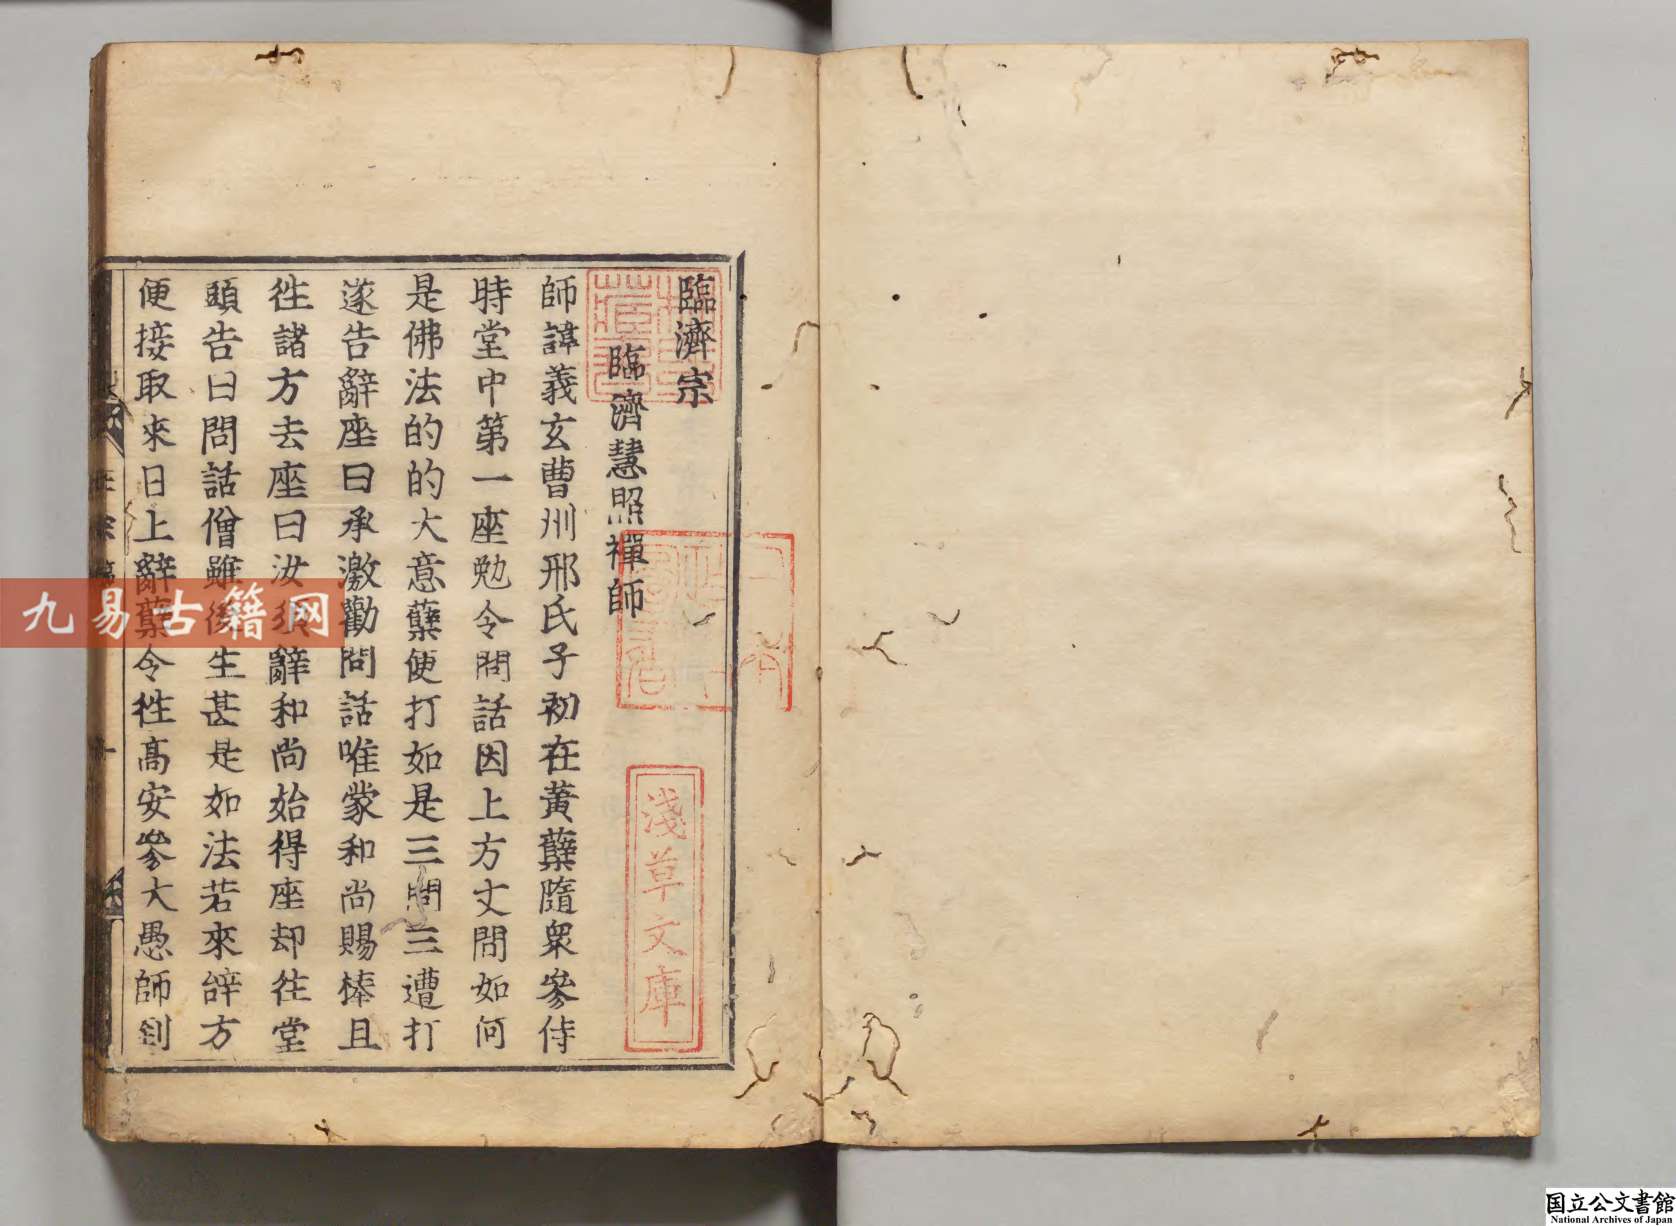 臨濟宗
臨濟慧照禪師
師諱義玄曹州邢氏子初在黃蘗隨衆參侍
時堂中第一座勉令問話因上方丈問如何
是佛法的的大意蘗便打如是三問三遭打
遂告辭座曰承激勸問話唯蒙和尚賜棒且
徃諸方去座曰汝須辭和尚始得座却往堂
頭告曰問話僧雖後生甚是如法若來辞方
便接取來日上辭蘗令徃高安參大愚師到
淺草文庫
九易古籍网
国立公文書館
National Archives of Japan